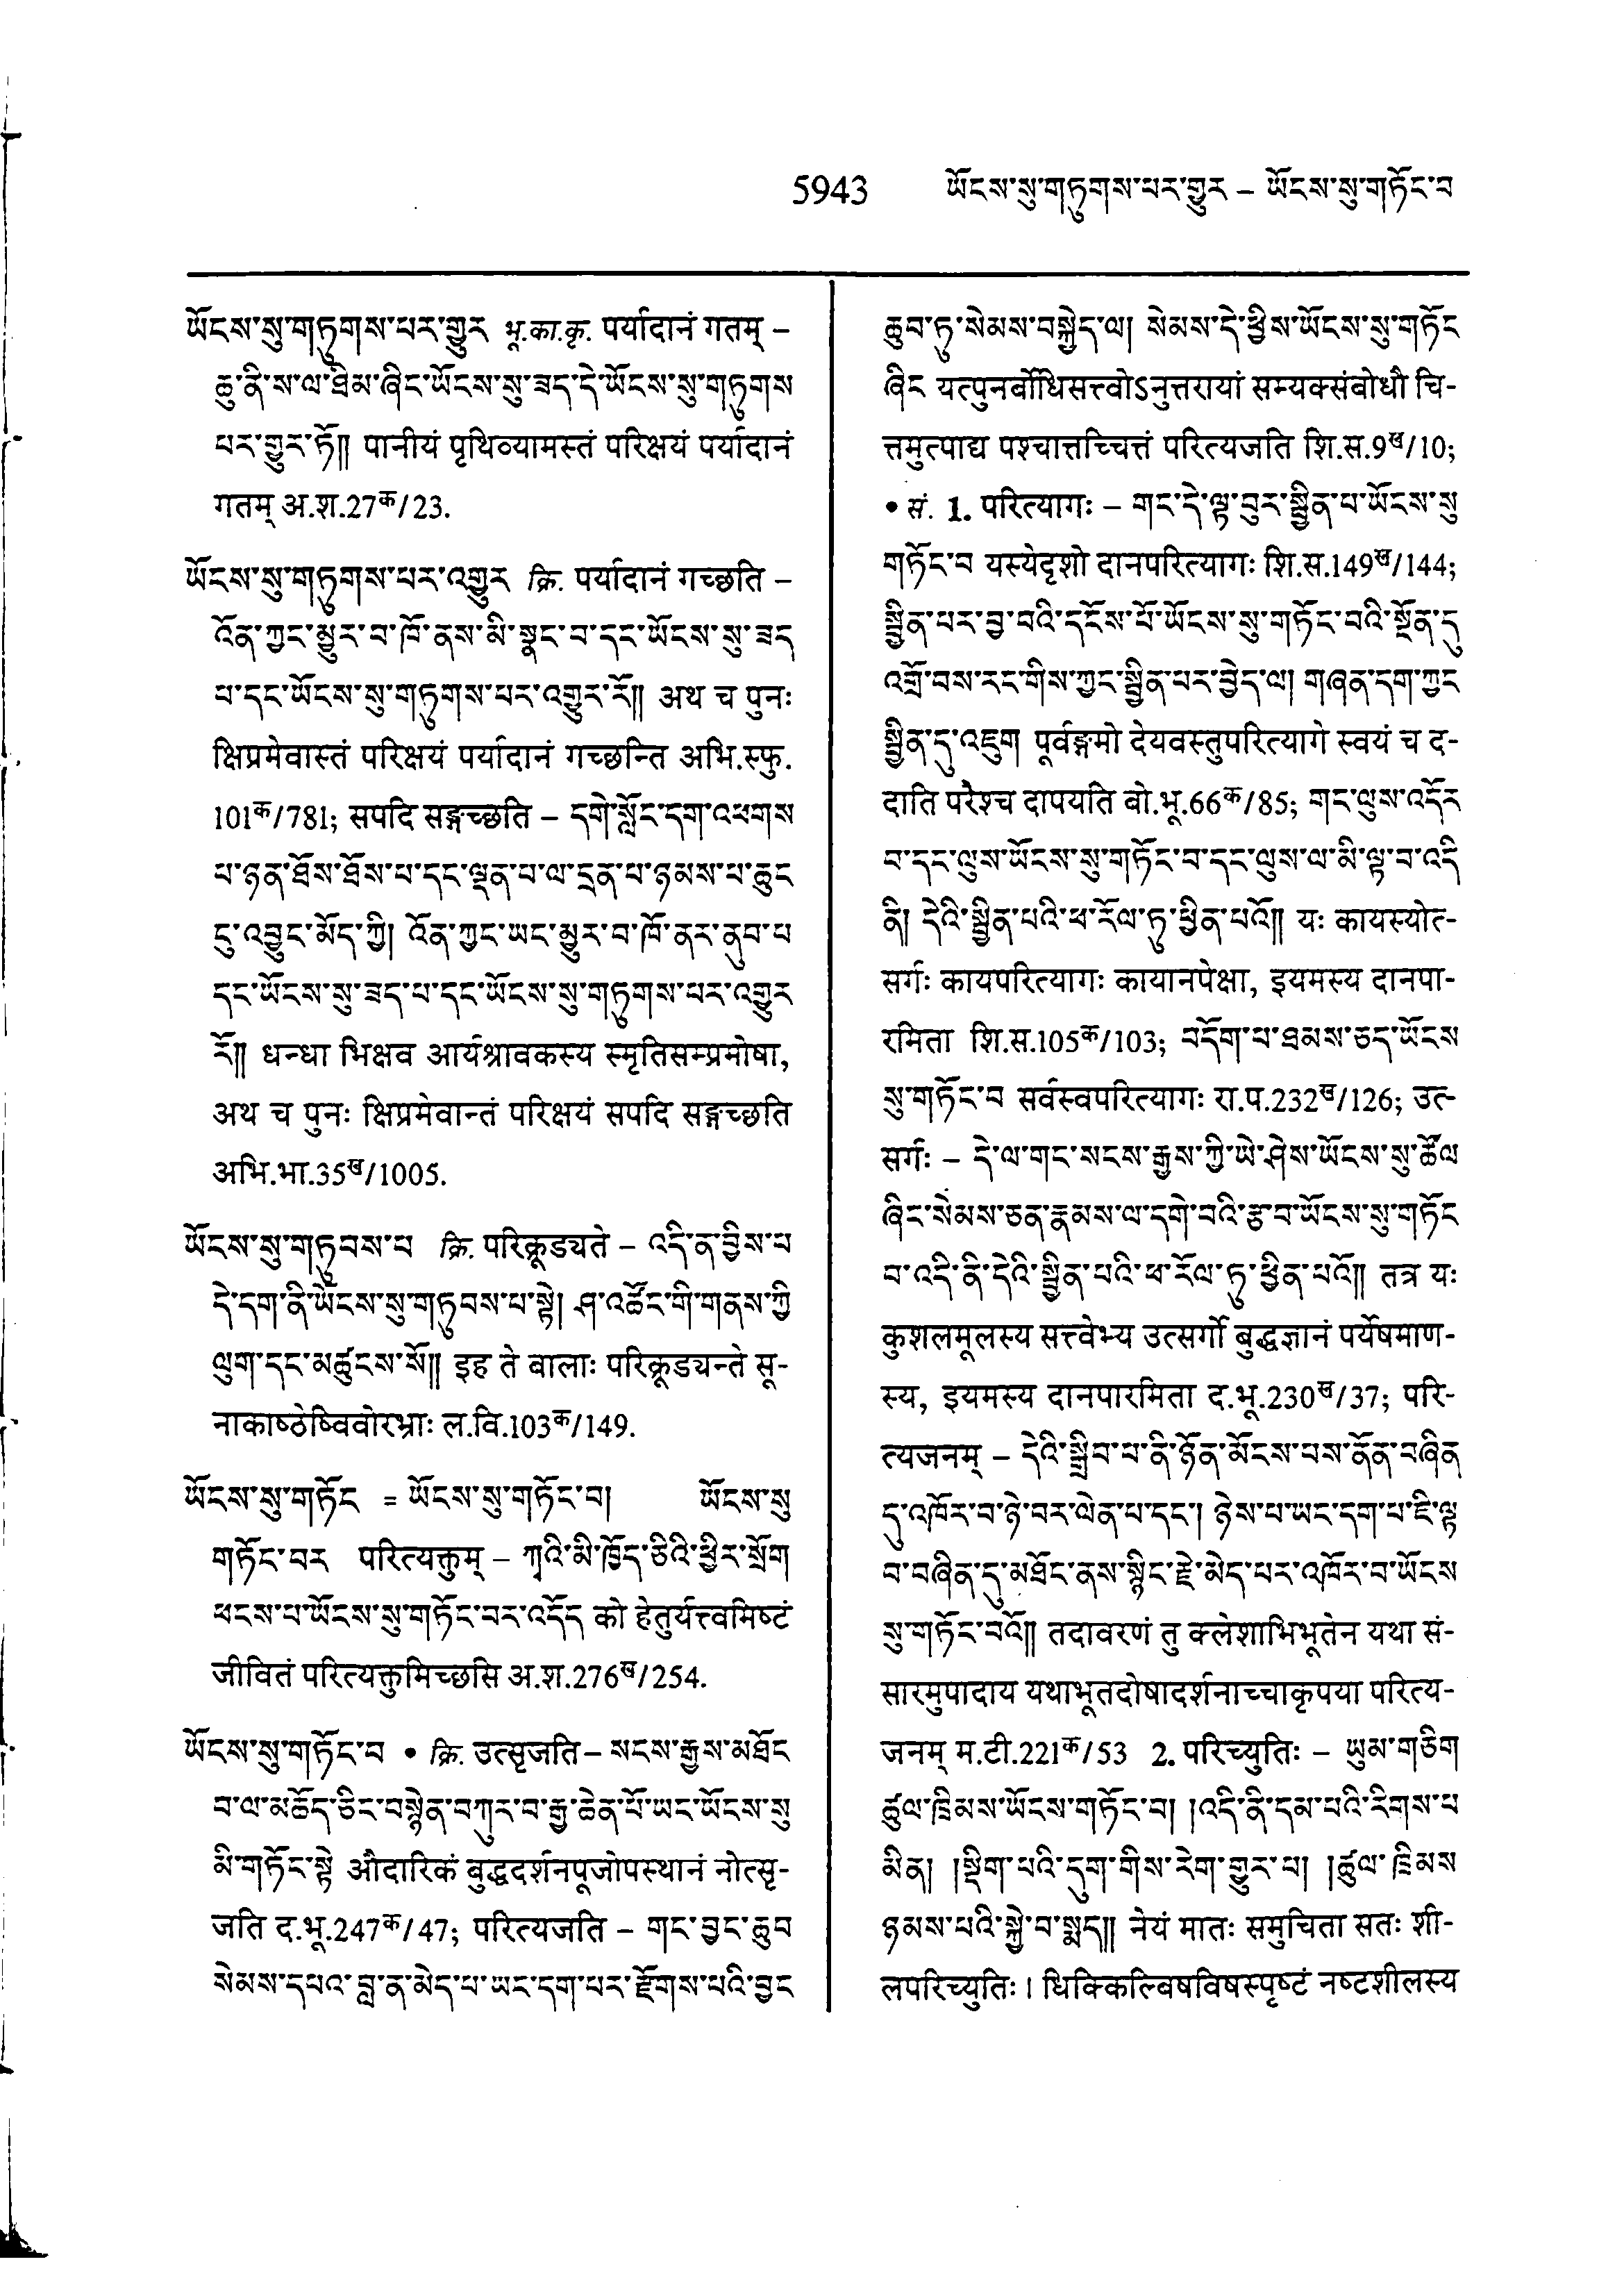 5943 ཡོངས་སུ་གཏུགས་པར་གྱུར – ཡོངས་སུ་གཏོང་བ
ཡོངས་སུ་གཏུགས་པར་གྱུར भू.का.कृ. पर्यादानं गतम् –
ཆུ་ནི་ས་ལ་ཐིམ་ཞིང་ཡོངས་སུ་ཟད་དེ་ཡོངས་སུ་གཏུགས
པར་གྱུར་ཏོ།། पानीयं पृथिव्यामस्तं परिक्षयं पर्यादानं
गतम् अ.श.27क/23.
ཡོངས་སུ་གཏུགས་པར་འགྱུར क्रि. पर्यादानं गच्छति –
འོན་ཀྱང་མྱུར་བ་ཁོ་ནས་མི་སྣང་བ་དང་ཡོངས་སུ་ཟད
པ་དང་ཡོངས་སུ་གཏུགས་པར་འགྱུར་རོ།། अथ च पुनः
क्षिप्रमेवास्तं परिक्षयं पर्यादानं गच्छन्ति अभि.स्फु.
101क/781; सपदि सङ्गच्छति – དགེ་སློང་དག་འཕགས
པ་ཉན་ཐོས་ཐོས་པ་དང་ལྡན་པ་ལ་དྲན་པ་ཉམས་པ་ཆུང
ངུ་འབྱུང་མོད་ཀྱི། འོན་ཀྱང་ཡང་མྱུར་བ་ཁོ་ནར་ནུབ་པ
དང་ཡོངས་སུ་ཟད་པ་དང་ཡོངས་སུ་གཏུགས་པར་འགྱུར
རོ།། धन्धा भिक्षव आर्यश्रावकस्य स्मृतिसम्प्रमोषा,
अथ च पुनः क्षिप्रमेवान्तं परिक्षयं सपदि सङ्गच्छति
अभि.भा.35ख/1005.
ཡོངས་སུ་གཏུབས་པ क्रि. परिक्रूड्यते – འདི་ན་བྱིས་པ
དེ་དག་ནི་ཡོངས་སུ་གཏུབས་པ་སྟེ། ཤ་འཚོང་གི་གནས་ཀྱི
ལུག་དང་མཚུངས་སོ།། इह ते बालाः परिक्रूड्यन्ते सू-
नाकाष्ठेष्विवोरभ्राः ल.वि.103क/149.
ཡོངས་སུ་གཏོང = ཡོངས་སུ་གཏོང་བ། ཡོངས་སུ
གཏོང་བར परित्यक्तुम् – ཀྭའི་མི་ཁྱོད་ཅིའི་ཕྱིར་སྲོག
ཕངས་པ་ཡོངས་སུ་གཏོང་བར་འདོད को हेतुर्यत्त्वमिष्टं
जीवितं परित्यक्तुमिच्छसि अ.श.276ख/254.
ཡོངས་སུ་གཏོང་བ • क्रि. उत्सृजति – སངས་རྒྱས་མཐོང
བ་ལ་མཆོད་ཅིང་བསྙེན་བཀུར་བ་རྒྱ་ཆེན་པོ་ཡང་ཡོངས་སུ
མི་གཏོང་སྟེ औदारिकं बुद्धदर्शनपूजोपस्थानं नोत्सृ-
जति द.भू.247क/47; परित्यजति – གང་བྱང་ཆུབ
སེམས་དཔའ་བླ་ན་མེད་པ་ཡང་དག་པར་རྫོགས་པའི་བྱང
ཆུབ་ཏུ་སེམས་བསྐྱེད་ལ། སེམས་དེ་ཕྱིས་ཡོངས་སུ་གཏོང
ཞིང यत्पुनर्बोधिसत्त्वोऽनुत्तरायां सम्यक्संबोधौ चि-
त्तमुत्पाद्य पश्चात्तच्चित्तं परित्यजति शि.स.9ख/10;
• सं. 1. परित्यागः – གང་དེ་ལྟ་བུར་སྦྱིན་པ་ཡོངས་སུ
གཏོང་བ यस्येदृशो दानपरित्यागः शि.स.149ख/144;
སྦྱིན་པར་བྱ་བའི་དངོས་པོ་ཡོངས་སུ་གཏོང་བའི་སྔོན་དུ
འགྲོ་བས་རང་གིས་ཀྱང་སྦྱིན་པར་བྱེད་ལ། གཞན་དག་ཀྱང
སྦྱིན་དུ་འཇུག पूर्वङ्गमो देयवस्तुपरित्यागे स्वयं च द-
दाति परैश्च दापयति बो.भू.66क/85; གང་ལུས་འདོར
བ་དང་ལུས་ཡོངས་སུ་གཏོང་བ་དང་ལུས་ལ་མི་ལྟ་བ་འདི
ནི། དེའི་སྦྱིན་པའི་ཕ་རོལ་ཏུ་ཕྱིན་པའོ།། यः कायस्योत्-
सर्गः कायपरित्यागः कायानपेक्षा, इयमस्य दानपा-
रमिता शि.स.105क/103; བདོག་པ་ཐམས་ཅད་ཡོངས
སུ་གཏོང་བ सर्वस्वपरित्यागः रा.प.232ख/126; उत्-
सर्गः – དེ་ལ་གང་སངས་རྒྱས་ཀྱི་ཡེ་ཤེས་ཡོངས་སུ་ཚོལ
ཞིང་སེམས་ཅན་རྣམས་ལ་དགེ་བའི་རྩ་བ་ཡོངས་སུ་གཏོང
བ་འདི་ནི་དེའི་སྦྱིན་པའི་ཕ་རོལ་ཏུ་ཕྱིན་པའོ།། तत्र यः
कुशलमूलस्य सत्त्वेभ्य उत्सर्गो बुद्धज्ञानं पर्येषमाण-
स्य, इयमस्य दानपारमिता द.भू.230ख/37; परि-
त्यजनम् – དེའི་སྒྲིབ་པ་ནི་ཉོན་མོངས་པས་ནོན་བཞིན
དུ་འཁོར་བ་ཉེ་བར་ལེན་པ་དང༌། ཉེས་པ་ཡང་དག་པ་ཇི་ལྟ
བ་བཞིན་དུ་མཐོང་ནས་སྙིང་རྗེ་མེད་པར་འཁོར་བ་ཡོངས
སུ་གཏོང་བའོ།། तदावरणं तु क्लेशाभिभूतेन यथा सं-
सारमुपादाय यथाभूतदोषादर्शनाच्चाकृपया परित्य-
जनम् म.टी.221क/53 2. परिच्युतिः – ཡུམ་གཅིག
ཚུལ་ཁྲིམས་ཡོངས་གཏོང་བ། །འདི་ནི་དམ་པའི་རིགས་པ
མིན། །སྡིག་པའི་དུག་གིས་རེག་གྱུར་པ། །ཚུལ་ཁྲིམས
ཉམས་པའི་སྐྱེ་བ་སྨད།། नेयं मातः समुचिता सतः शी-
लपरिच्युतिः । धिक्किल्विषविषस्पृष्टं नष्टशीलस्य